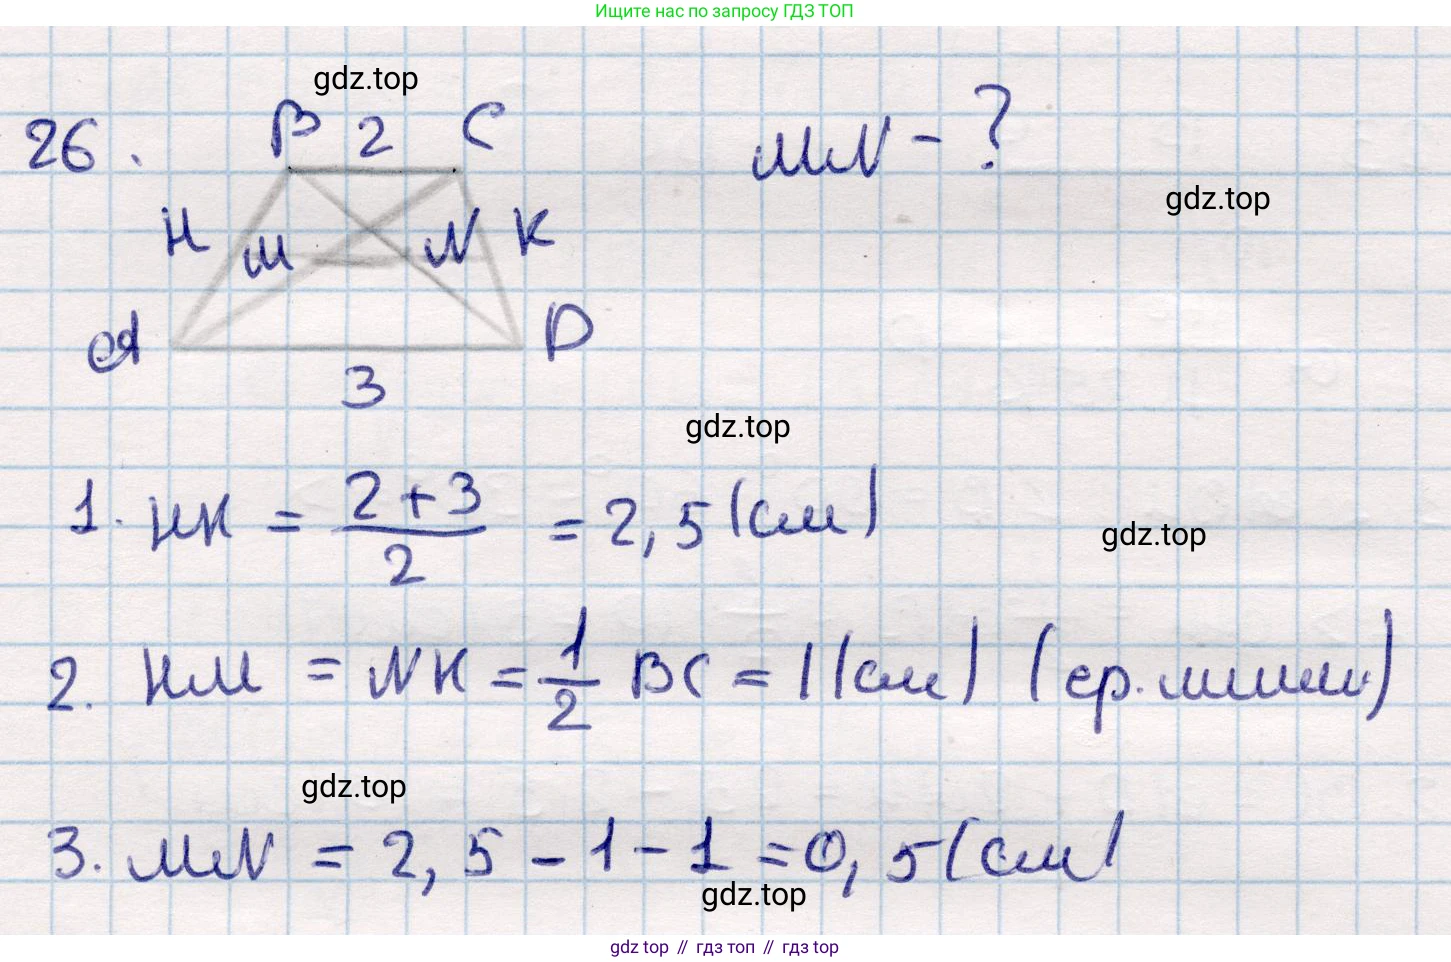 Ищите нас по запросу ГДЗ ТОП
gdz.top
26.
B 2 C
MN - ?
gdz.top
H M N K
A D
3
gdz.top
1. HK = \frac{2+3}{2} = 2,5 (см)
gdz.top
2. HM = NK = \frac{1}{2} BC = 1 (см) (ср. линии)
gdz.top
3. MN = 2,5 - 1 - 1 = 0,5 (см)
gdz.top
gdz top // гдз топ // гдз top